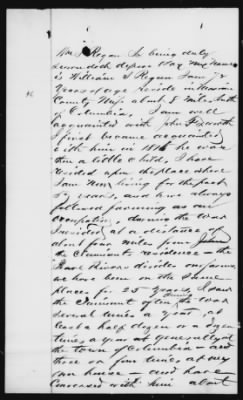 Wm S Regan Sr being duly
sworn doth depose & say my name
is William S Regan I am 72
years of age reside in Marion
County Miss about 8 miles south
of Columbia, I am well
acquainted with John
I first became acquainted
with him in 1816 he was
then a little child, I have
resided upon the place where
I am now living for the past
years, and have always
followed farming as an
occupation, during the war
I resided at a distance of
about four miles from John
the Claimants residence - the
Pearl River divides our farms
we have been on the same
places for 25 years, I saw
the Claimant often during the war
several times a year, at
least a half dozen or a dozen
times a year at generally at
the town of Columbia - and
three or four times at my
own house - and have
conversed with him about